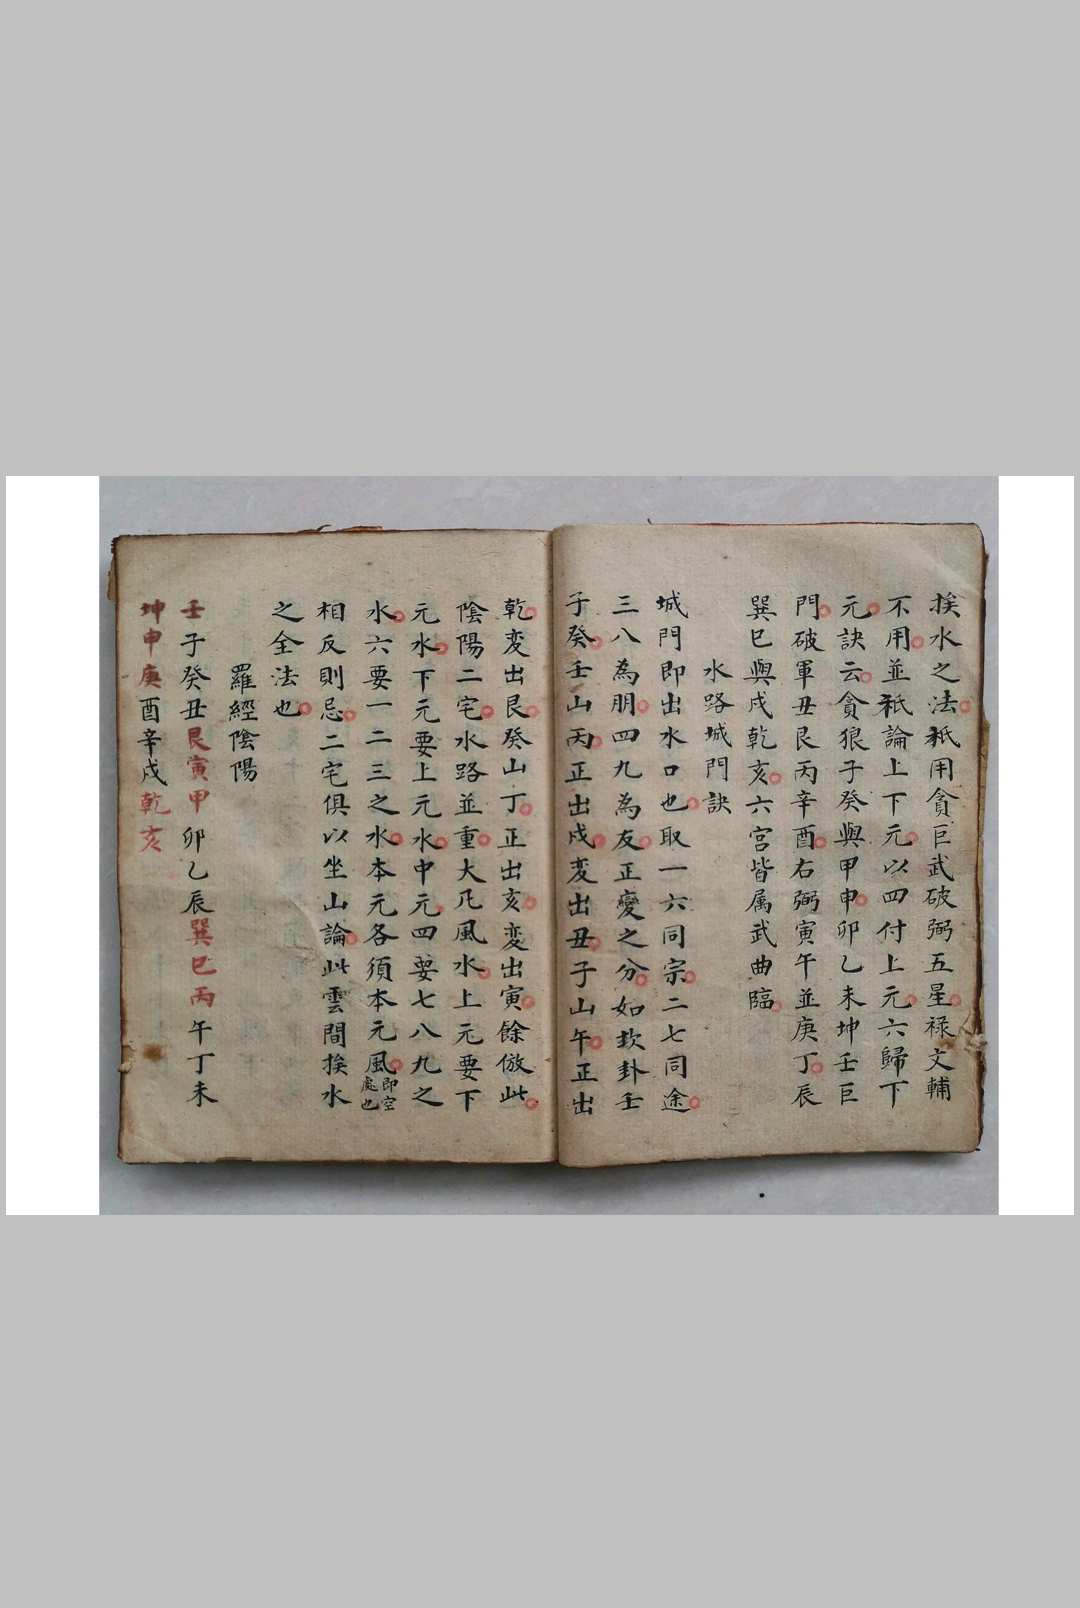 挨水之法祇用貪巨武破弼五星祿文輔
不用並祇論上下元以四付上元六歸下
元訣云貪狼子癸與甲申卯乙未坤壬巨
門破軍丑艮丙辛酉右弼寅午並庚丁辰
巽巳與戌乾亥六宮皆属武曲臨
水路城門訣
城門即出水口也取一六同宗二七同途
三八為朋四九為友正變之分如坎卦壬
子癸壬山丙正出戌変出丑子山午正出
乾変出艮癸山丁正出亥変出寅餘倣此
陰陽二宅水路並重大凡風水上元要下
元水下元要上元水中元四要七八九之
水六要一二三之水本元各須本元風即空處也
相反則忌二宅俱以坐山論此雲間挨水
之全法也
羅經陰陽
壬子癸丑艮寅甲卯乙辰巽巳丙午丁未
坤申庚酉辛戌乾亥